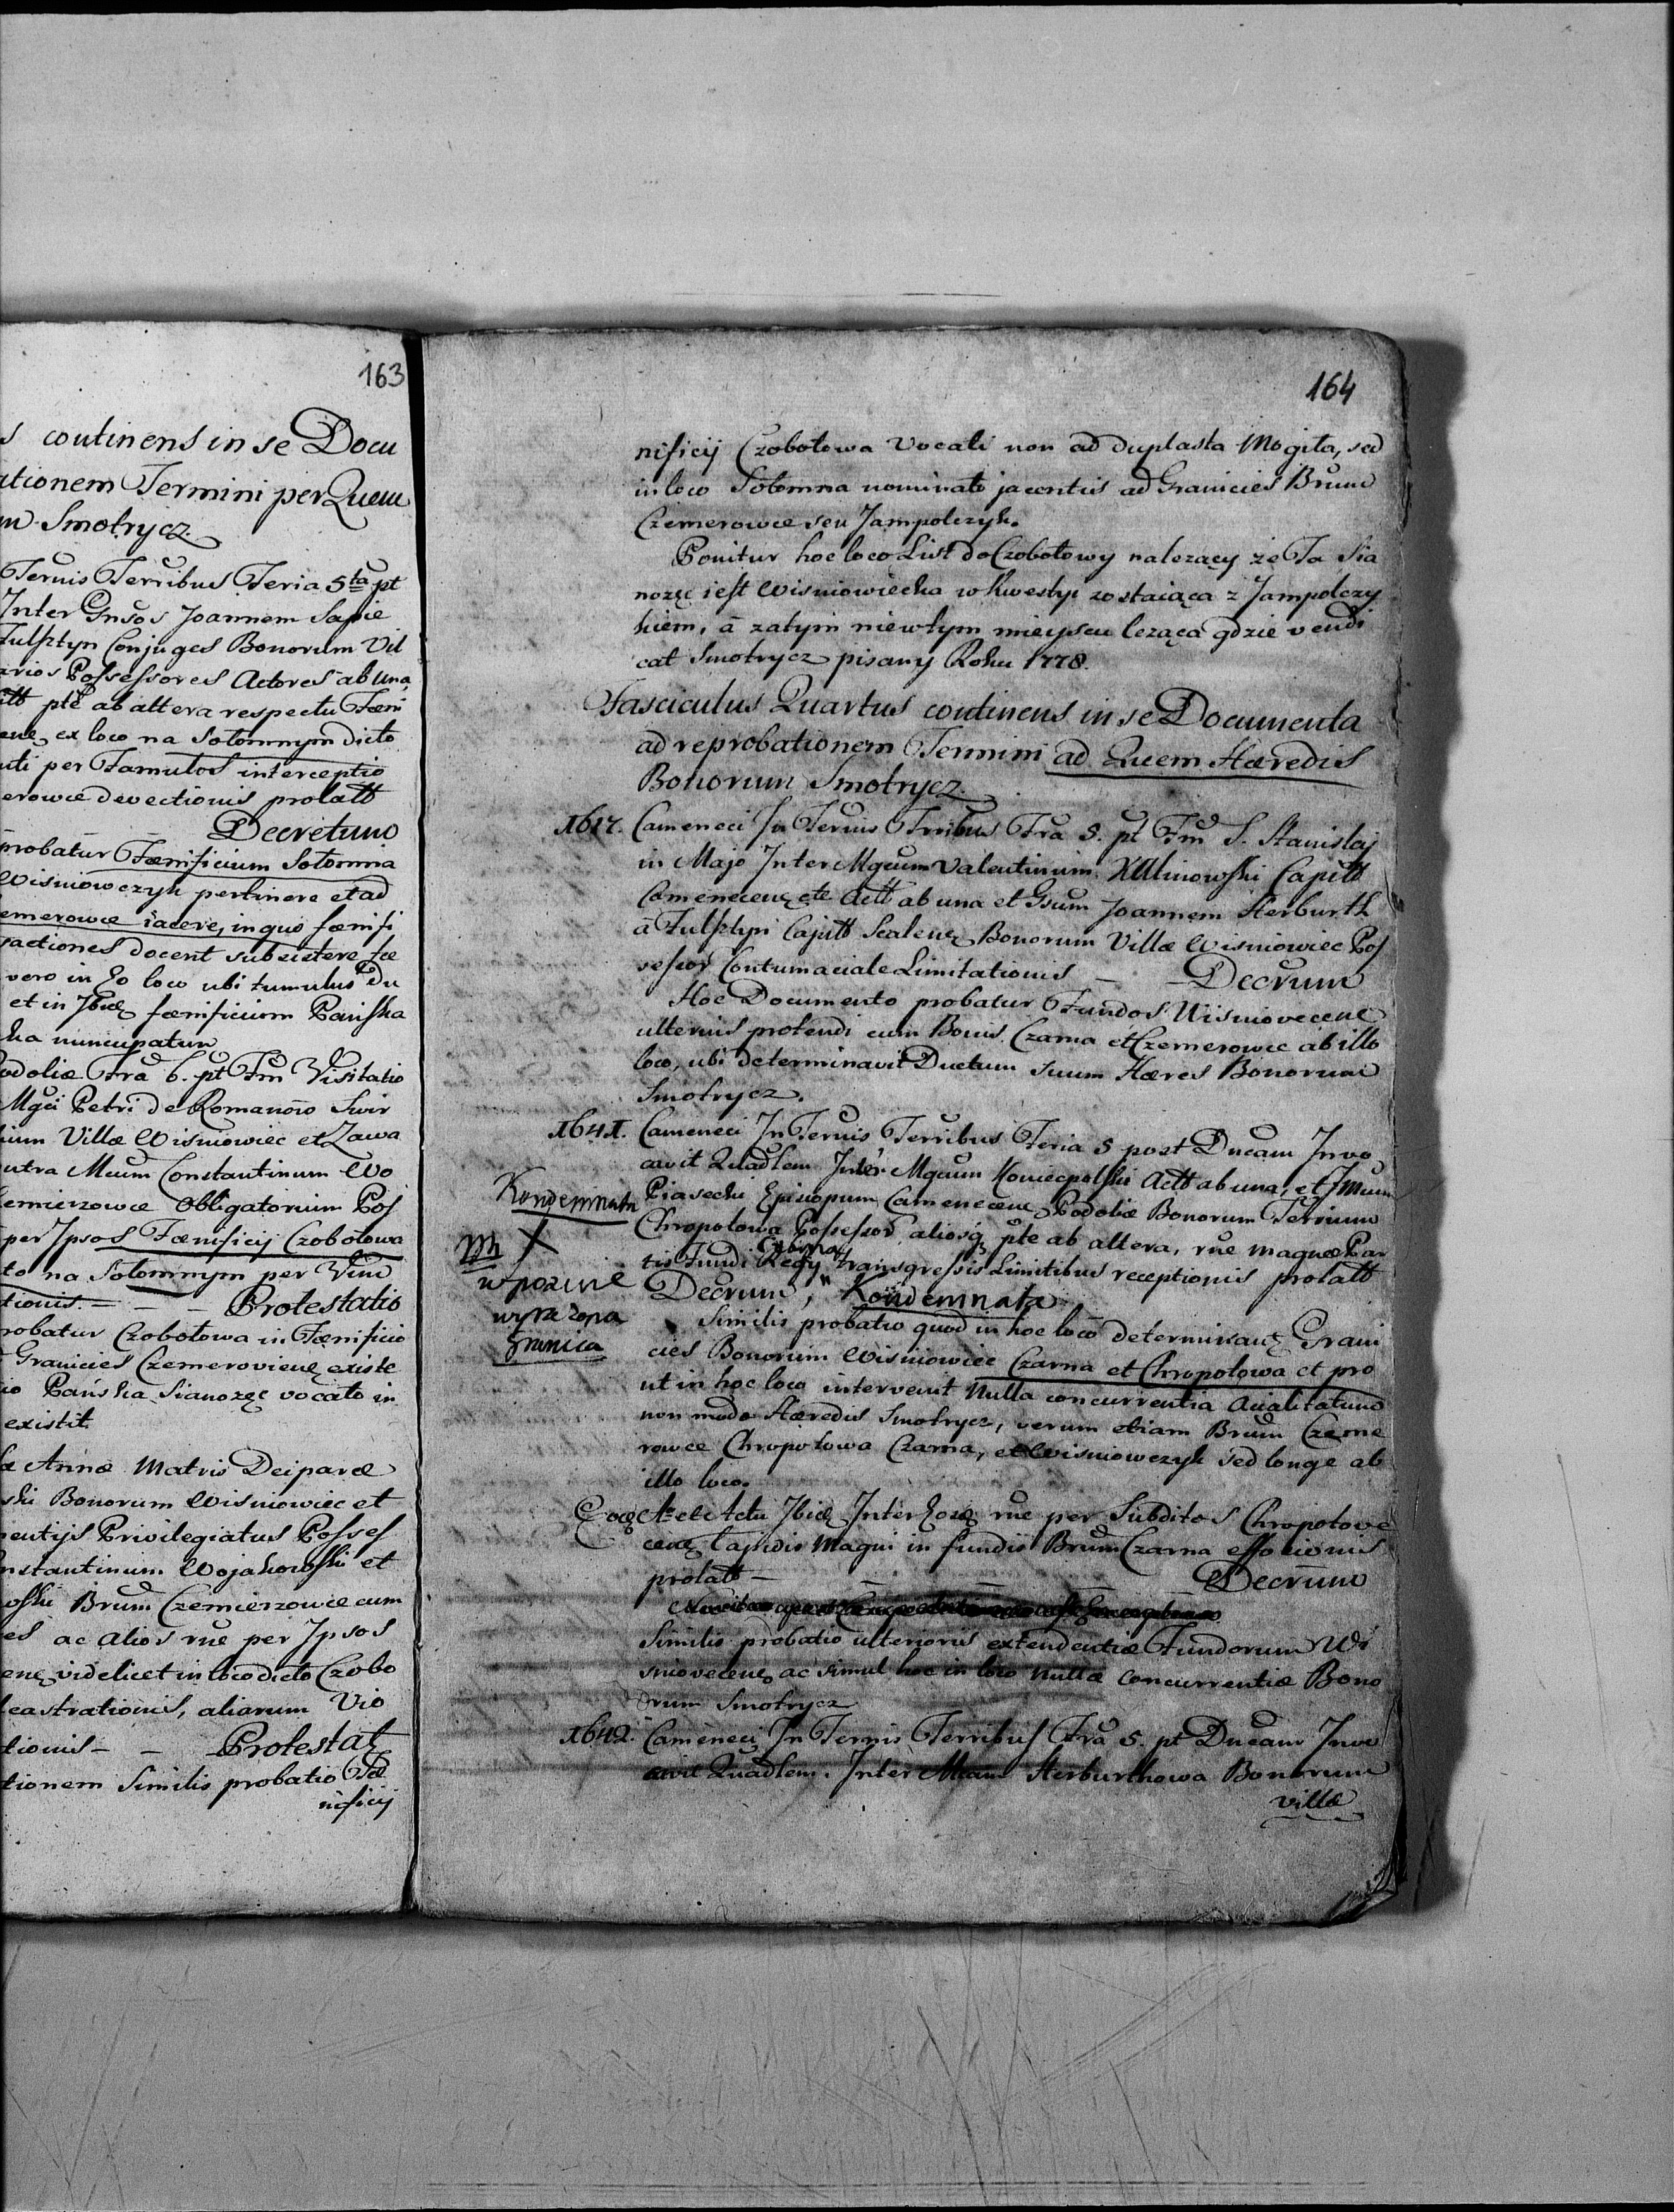 163
s continens in se Docu
ationem Termini per Quem
m Smotrycz.
Termis Terribus Feria 5ta pt
Inter Gnsos Joannem Sapie
Fulsztyn Conjuges Bonorum Vil
arios Possessores Actores ab una,
itt pte ab altera respectu Fæni
enę ex loco na Sołomnym dicto
uti per Famulos interceptio
erowce devectionis prolatt
Decretum
probatur Fænificium Sołomna
Wisniowczyk pertinere et ad
emerowce iacere, in quo fænifi
ractiones docent subsistere, fæ
vero in Eo loco ubi tumulus Du
et in Ibidę fænificium Pańska
ka nuncupatur
odoliæ Fra 6. pt Fm Visitatio
Mgci Petri de Romanow Swir
ium Villæ Wisniowiec et Zawa
utra Mcum Constantinum Wo
emierzowce obligatorium Pos
per Ipsos Fænificij Czobotowa
to na Sołomnym per Vim
tionis. — — — Protestatio
robatur Czobotowa in Fænificio
Granicies Czemerovienę existe
io Pańska Sianożęc vocato in
existit
æ Annæ Matris Deiparæ
ski Bonorum Wisniowiec et
entijs Privilegiatus Posses
nstantinum Wojakowski et
oski Brum Czemierzowce cum
es ac alios rne per Ipsos
enę videlicet in loco dicto Czobo
castrationis, aliarum Vio
tionis — — Protestat
tionem Similis probatio Fæ
nificij
164
nificij Czobotowa Vocati non ad duplasta Mogiła, sed
in loco Sołomna nominato jacentis ad Granicies Brum
Czemerowce seu Jampolczyk.
Ponitur hoc loco List do Czobotowy nalezący że Ta Sia
nozęc iest Wisniowiecka w kwestyi zostaiąca z Jampolczy
kiem, a zatym niewtym mieyscu leząca gdzie vendi
cat Smotrycz pisany Roku 1778.
Fasciculus Quartus continens in se Documenta
ad reprobationem Termini ad Quem Hæredis
Bonorum Smotrycz.
1617. Cameneci In Termis Trribus Fra 5. pt Fm S. Stanislaj
in Majo Inter Mgcum Valentinum Kalinowski Capitt
Camenecenę etc Actt ab una et Gsum Joannem Herburth
a Fulsztyn Capitt Scalenę Bonorum Villæ Wisniowiec Pos
sessor Contumaciale Limitationis — — Decrum
Hoc Documento probatur Fundos Wisniovecenę
ulterius protendi cum Bonis Czarna et Czemerowce ab illo
loco, ubi determinavit Ductum suum Hæres Bonorum
Smotrycz.
1641. Cameneci In Termis Terribus Feria 5 post Dncam Invo
cavit Quadlem Inter Mgcum Koniecpolski Actt ab una, et Imum
Piasecki Episcopum Camenecenę Podoliæ Bonorum Terrium
Chropotowa Possessor, aliosq pte ab altera, rne magnæ Par
Czarna
tis Fundi Regij transgressis Limitibus receptionis prolatt
Decrum, "Kondemnata
Kondemnata
w pozwie
wyrażona
granica
Similis probatio quod in hoc loco determinantę Grani
cies Bonorum Wisniowiec Czarna et Chropotowa et pro
ut in hoc loco intervenit nulla concurrentia Acialitatum
non modo Hæredis Smotrycz, verum etiam Brum Czeme
rowce Chropotowa Czarna, et Wisniowczyk sed longe ab
illo loco.
Eodę Ao et Actu Ibidę Inter Eosdę rne per Subditos Chropotove
cenę Lapidis Magni in fundis Brum Czarna effocionis
prolatt — — — — Decrum
Similis probatio ulterioris extendentiæ Fundorum Wi
sniovecenę ac simul hoc in loco nullæ concurrentiæ Bono
rum Smotrycz
1642. Cameneci In Termis Terribus Fra 5. pt Dncam Invo
cavit Quadlem. Inter Mcam Herburthowa Bonorum
Villæ